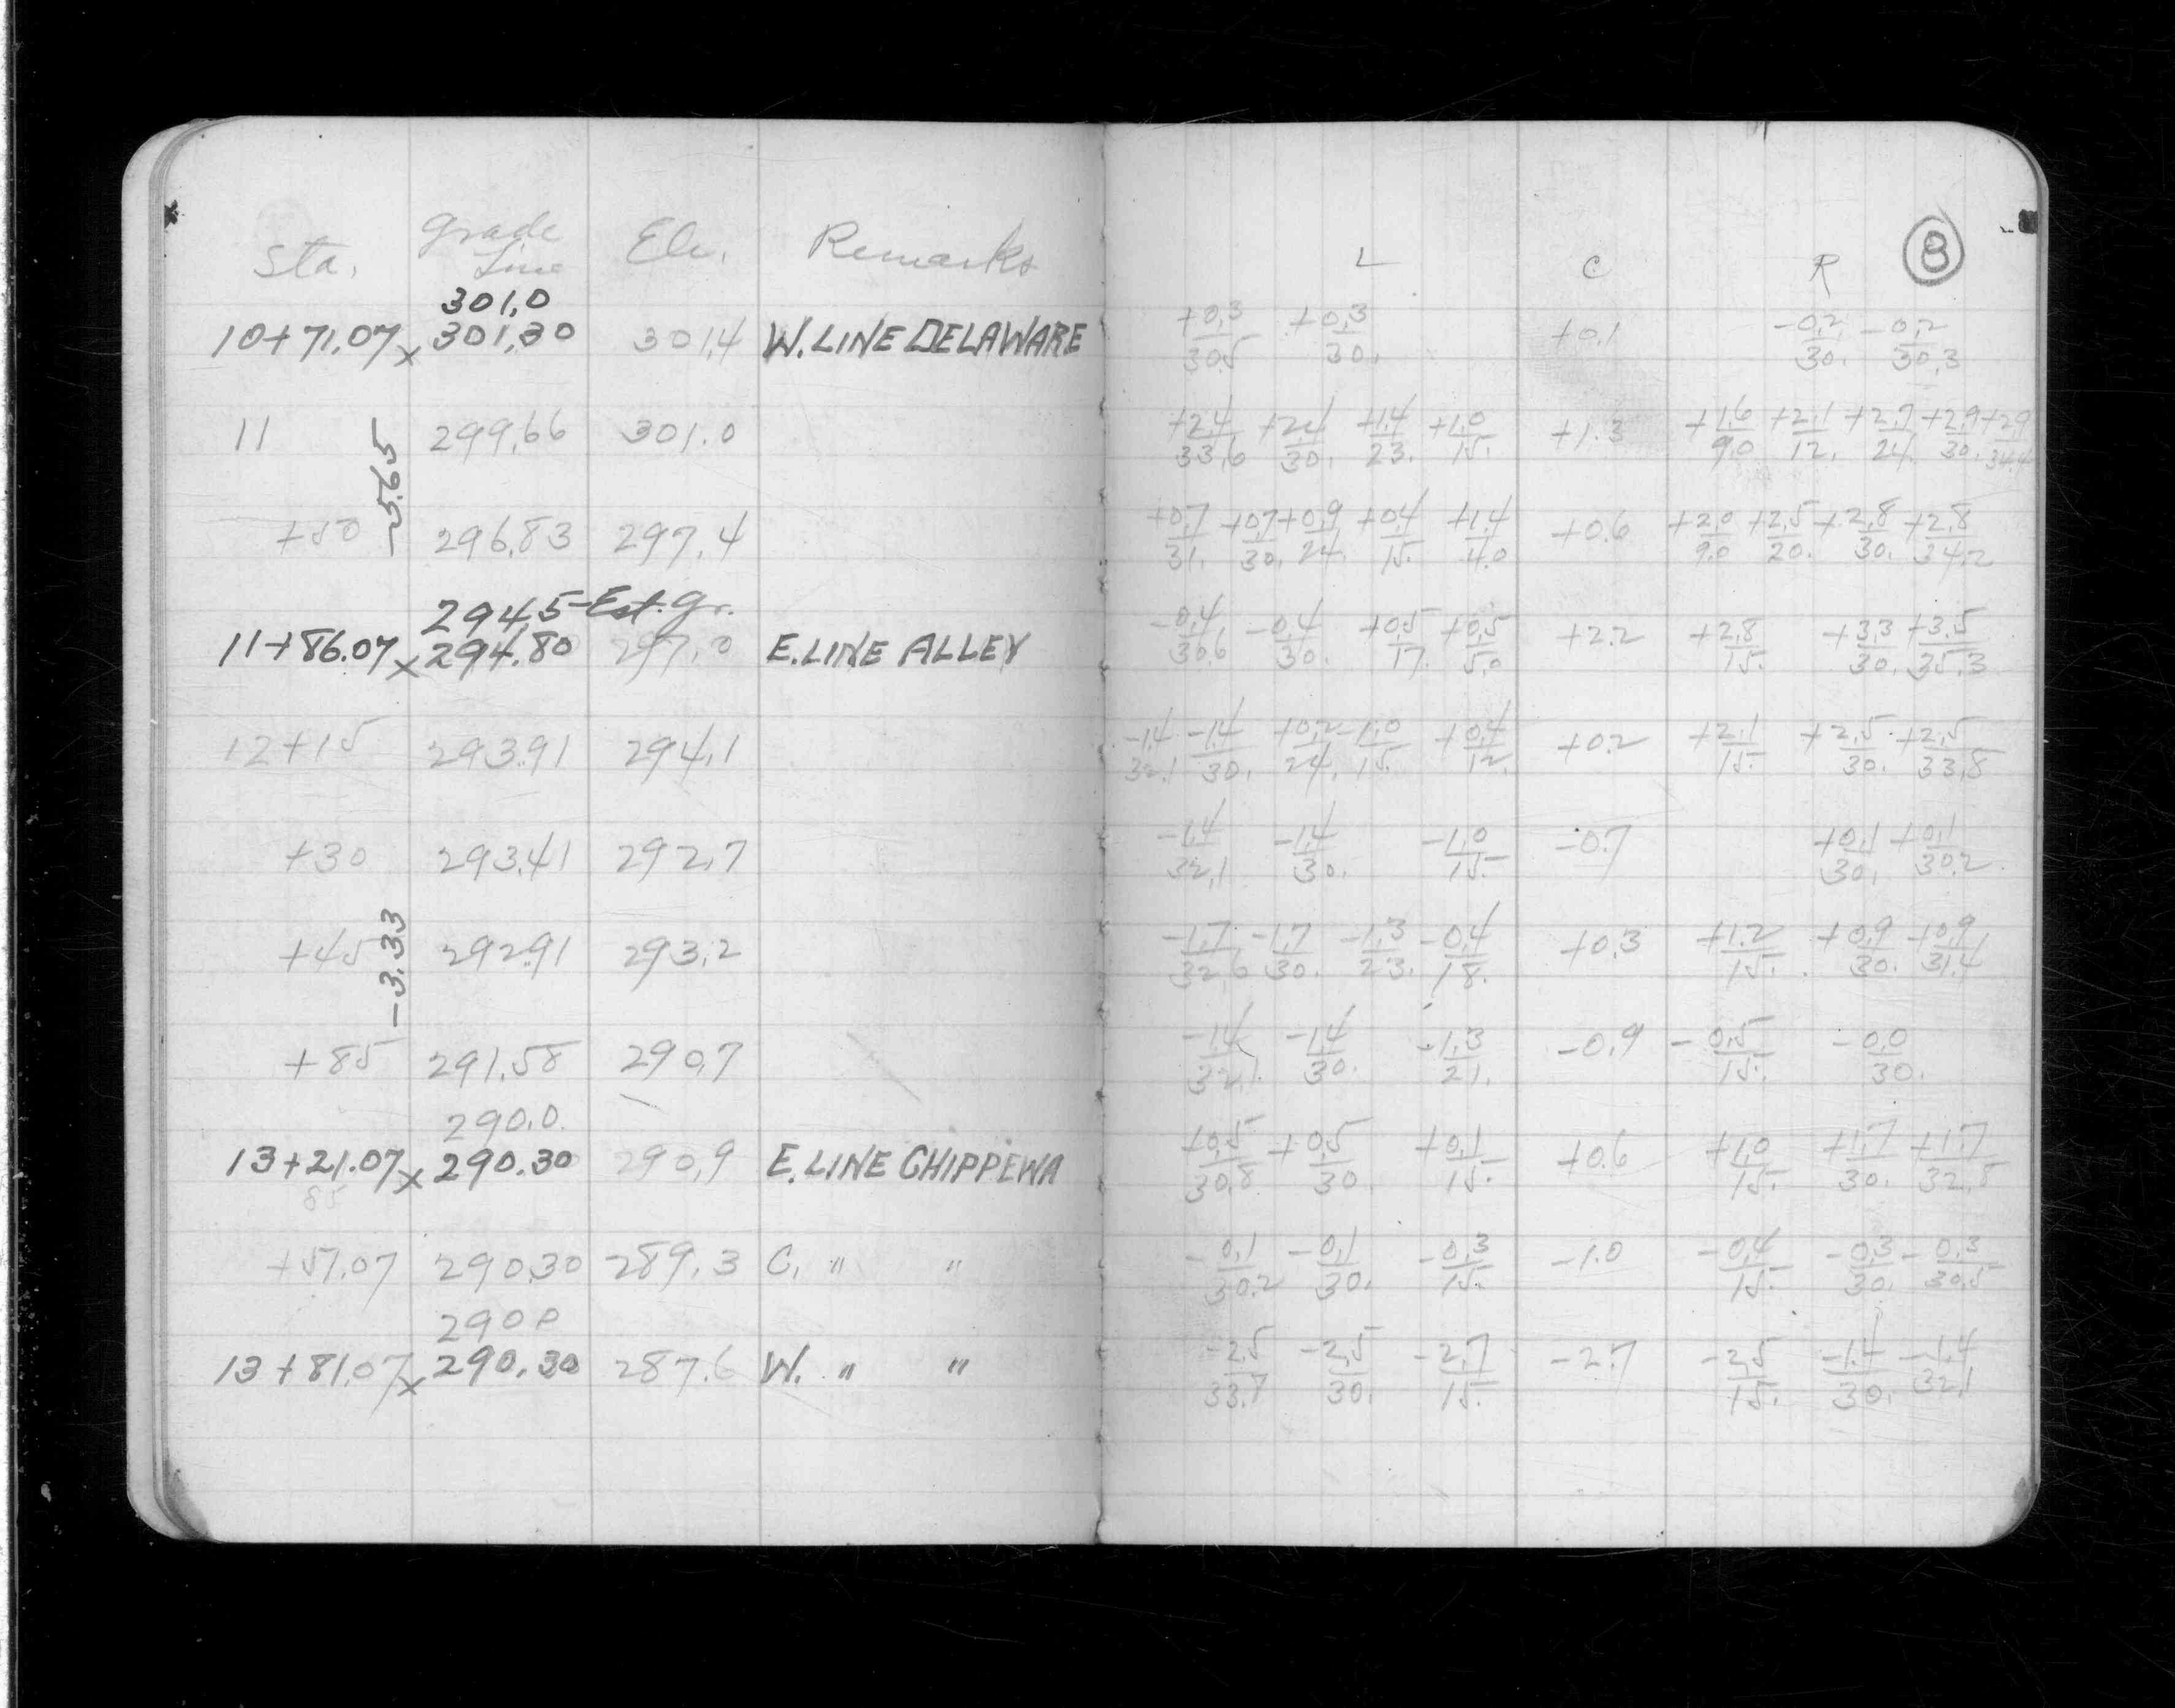 Sta. Grade Line Ele. Remarks
L C R 8
301.0
10+71.07 x 301.30 301.4 W. LINE DELAWARE
+0.3/30.5 +0.3/30. +0.1 -0.2/30. -0.2/30.3
11 299.66 301.0
+2.4/33.6 +2.4/30. +1.4/23. +1.0/15. +1.3 +1.6/9.0 +2.1/12. +2.7/24. +2.9/30. +2.9/34.4
-5.65
+50 296.83 297.4
+0.7/31. +0.7/30. +0.9/24. +0.4/15. +1.4/4.0 +0.6 +2.0/9.0 +2.5/20. +2.8/30. +2.8/34.2
294.5 Est. gr.
11+86.07 x 294.80 297.0 E. LINE ALLEY
-0.4/30.6 -0.4/30. +0.5/17. +0.5/5.0 +2.2 +2.8/15. +3.3/30. +3.5/35.3
12+15 293.91 294.1
-1.4/32.1 -1.4/30. +0.2/24. -1.0/15. +0.4/12. +0.2 +2.1/15. +2.5/30. +2.5/33.8
+30 293.41 292.7
-1.4/32.1 -1.4/30. -1.0/15. -0.7 +0.1/30. +0.1/30.2
-3.33
+45 292.91 293.2
-1.7/32.6 -1.7/30. -1.3/23. -0.4/18. +0.3 +1.2/15. +0.9/30. +0.9/31.4
+85 291.58 290.7
-1.4/32.1 -1.4/30. -1.3/21. -0.9 -0.5/15. -0.0/30.
290.0
13+21.07 x 290.30 290.9 E. LINE CHIPPEWA
85
+0.5/30.8 +0.5/30. +0.1/15. +0.6 +1.0/15. +1.7/30. +1.7/32.5
+51.07 290.30 289.3 C. " "
-0.1/30.2 -0.1/30. -0.3/15. -1.0 -0.4/15. -0.3/30. -0.3/30.5
290.0
13+81.07 x 290.30 287.6 W. " "
-2.5/33.7 -2.5/30. -2.7/15. -2.7 -2.5/15. -1.4/30. -1.4/32.1